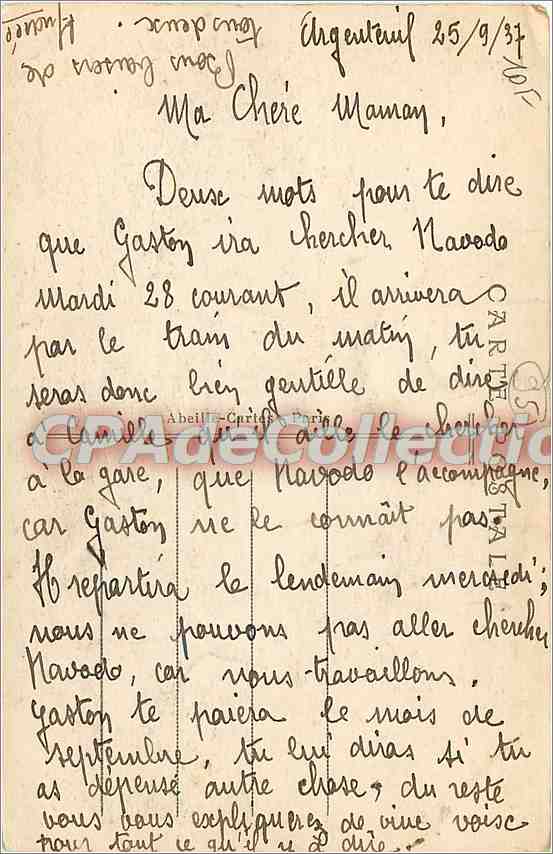 Argenteuil 25/9/37
Ma Chère Maman,
Deux mots pour te dire
que Gaston ira chercher Navodo
Mardi 28 courant, il arrivera
par le train du matin, tu
seras donc bien gentille de dire
à Camille qu'il aille le chercher
à la gare, que Navodo l'accompagne,
car Gaston ne le connaît pas.
Il repartira le lendemain mercredi;
nous ne pouvons pas aller chercher
Navodo, car nous travaillons.
Gaston te paiera le mois de
septembre, tu lui diras si tu
as dépensé autre chose, du reste
vous vous expliquerez de vive voix
pour tout ce qu'il y a à dire.
Bons baisers de
tous deux.
Andrée
105
CARTE POSTALE
Abeille-Cartes Paris
CPADeCollection